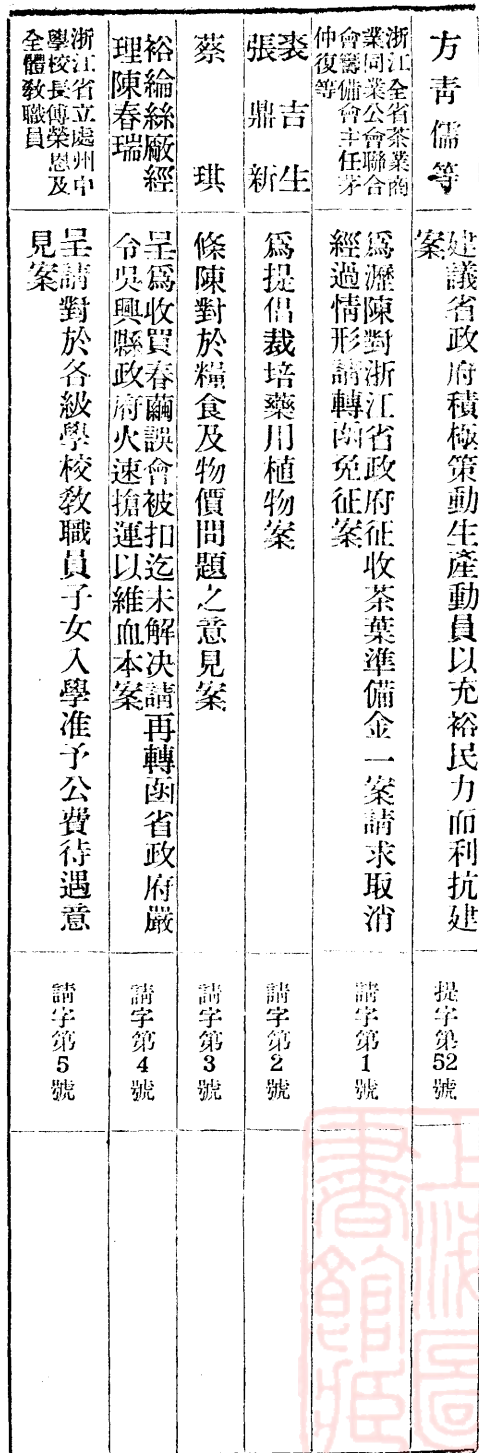 方青儒等
建議省政府積極策動生產動員以充裕民力而利抗建
案
提字第52號
浙江全省茶業商
業同業公會聯合
會籌備會主任茅
仲復等
爲瀝陳對浙江省政府征收茶葉準備金一案請求取消
經過情形請轉函免征案
請字第1號
裘吉生
張鼎新
爲提倡栽培藥用植物案
請字第2號
蔡琪
條陳對於糧食及物價問題之意見案
請字第3號
裕綸絲廠經
理陳春瑞
呈爲收買春繭誤會被扣迄未解決請再轉函省政府嚴
令吳興縣政府火速搶運以維血本案
請字第4號
浙江省立處州中
學校長傅榮恩及
全體敎職員
呈請對於各級學校敎職員子女入學准予公費待遇意
見案
請字第5號
上海圖
書館藏